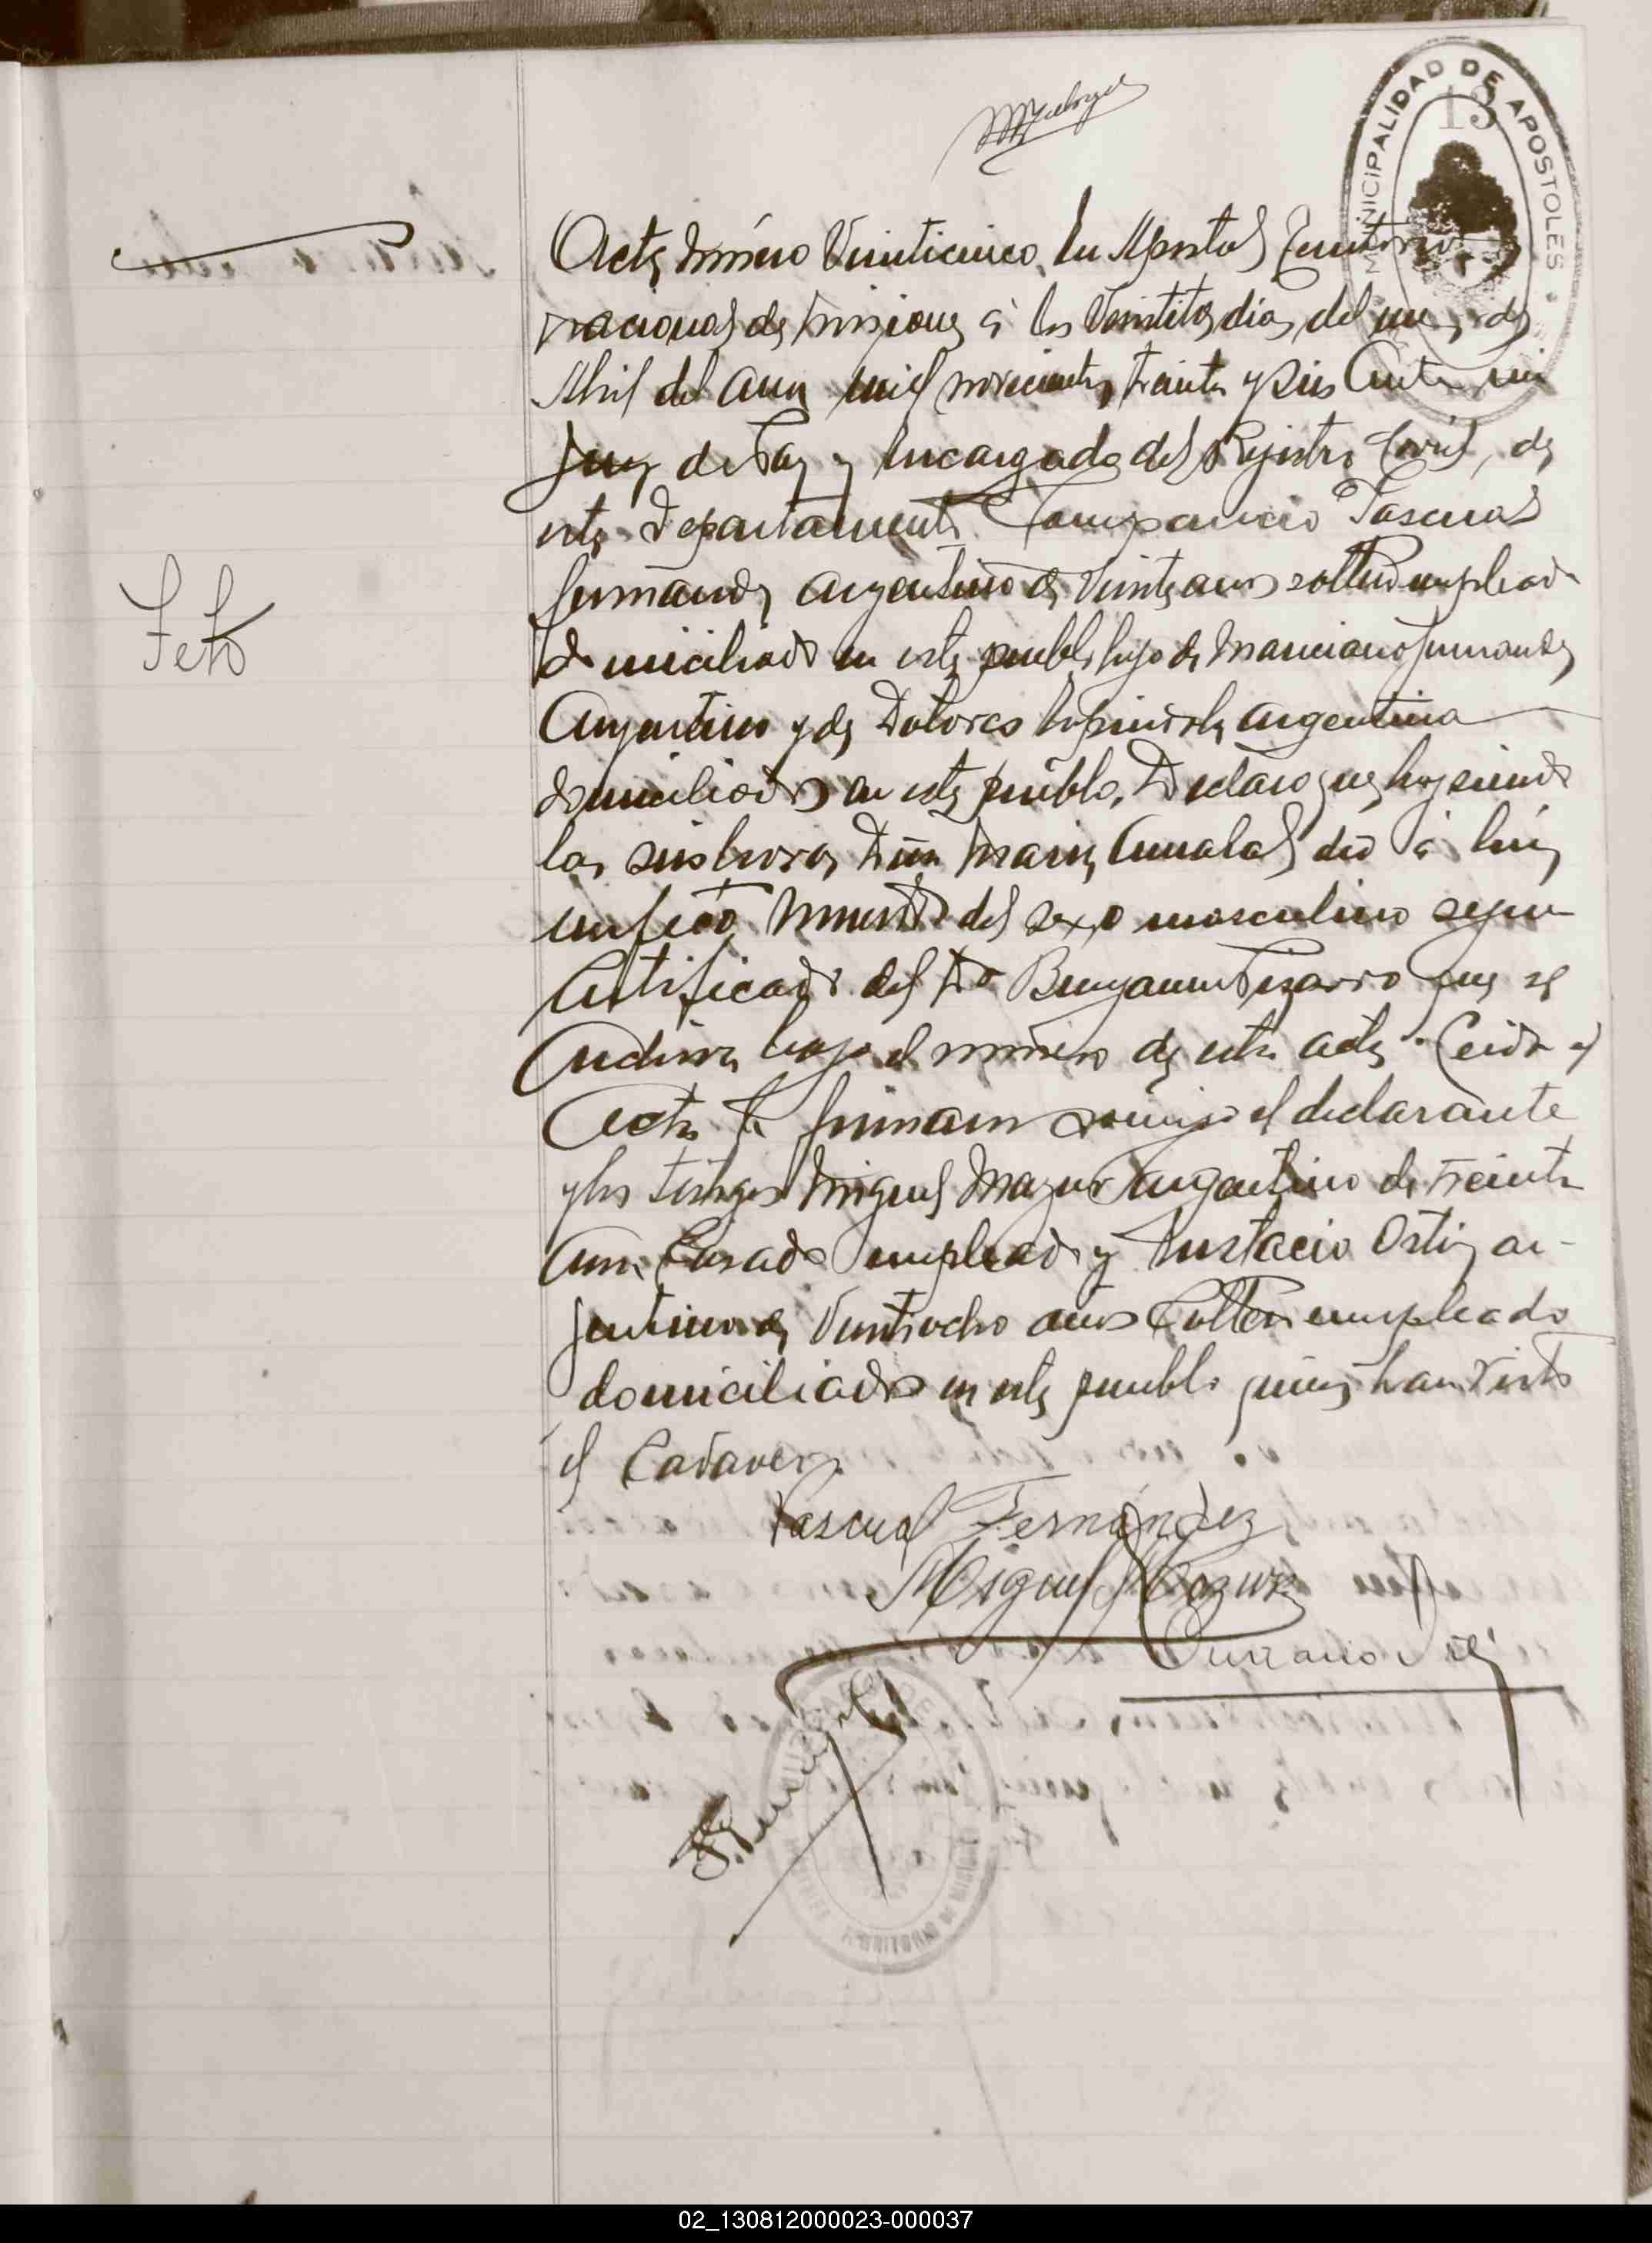 MUNICIPALIDAD DE APOSTOLES
13
Acta número Veinticinco. En Apostoles Territorio
nacional de Misiones á los dias del mes de
Abril del año mil novecientos treinta y seis Ante mi
Juez de Paz y Encargado del Rejistro Civil, de
este Departamento Comparecio Pascual
Fernandez argentino de Veinte años soltero empleado
domiciliado en este pueblo hijo de Marciano Fernandez
Feto
Argentino y de Dolores argentina
domiciliados en este pueblo, Declaro que hoy siendo
las seis horas Doña Maria dió á luz
un feto muerto del sexo masculino segun
Certificado del Dr Benjamin Pizarro que se
archiva bajo el número de esta acta. Leida el
Acta la firmaron conmigo el declarante
y los testigos Miguel Mazur argentino de treinta
años Casado empleado y Eustacio Ortiz ar-
jentino de Veintiocho años Soltero empleado
domiciliados en este pueblo quienes han visto
el Cadaver.
Pascual Fernández
Miguel Mazur
JUZGADO DE PAZ
TERRITORIO DE MISIONES
02_130812000023-000037